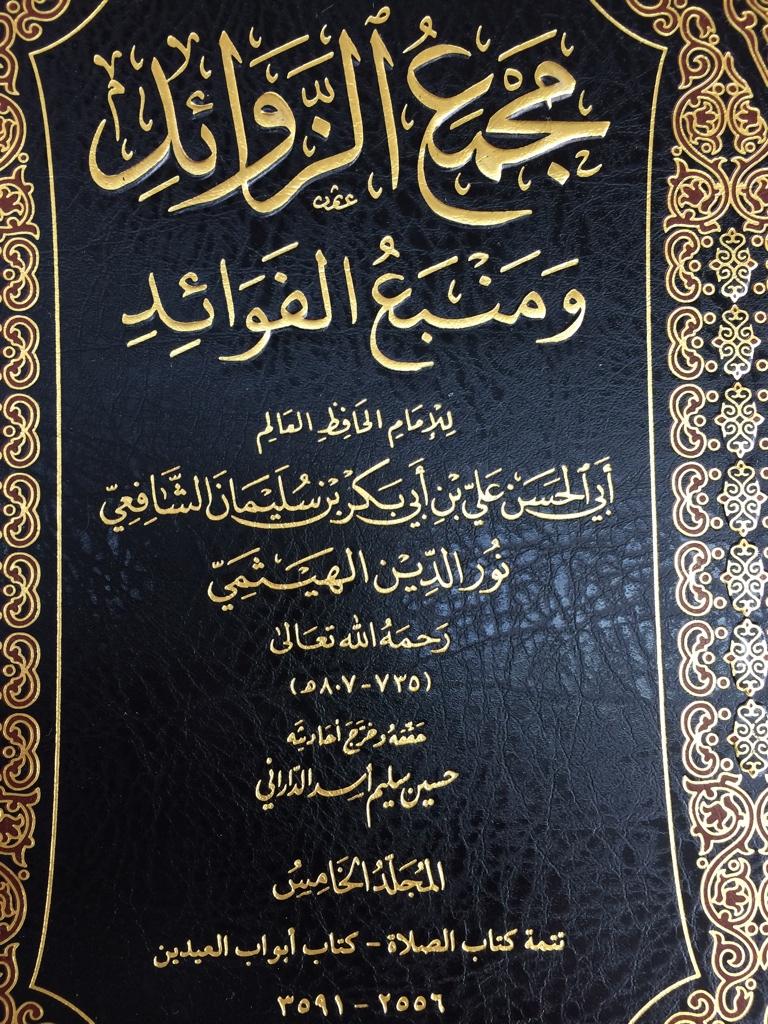 مَجْمَعُ ٱلزَّوَائِدِ
وَمَنْبَعُ الفَوَائِدِ
لِلإِمَامِ الحَافِظِ العَالِمِ
أَبِي ٱلحَسَن عَلِيّ بْنِ أَبِي بَكْر بْن سُلَيْمَانَ الشَّافِعِيّ
نُور الدِّين الهَيْثَمِيّ
رَحِمَهُ الله تعَالىٰ
(٧٣٥-٨٠٧ه)
حَقّقهُ وخرّجَ أحَاديثَه
حسين سليم أسد الدّاراني
المُجَلّدُ الخَامِسُ
تتمة كتاب الصلاة - كتاب أبواب العيدين
٢٥٥٦ - ٣٥٩١